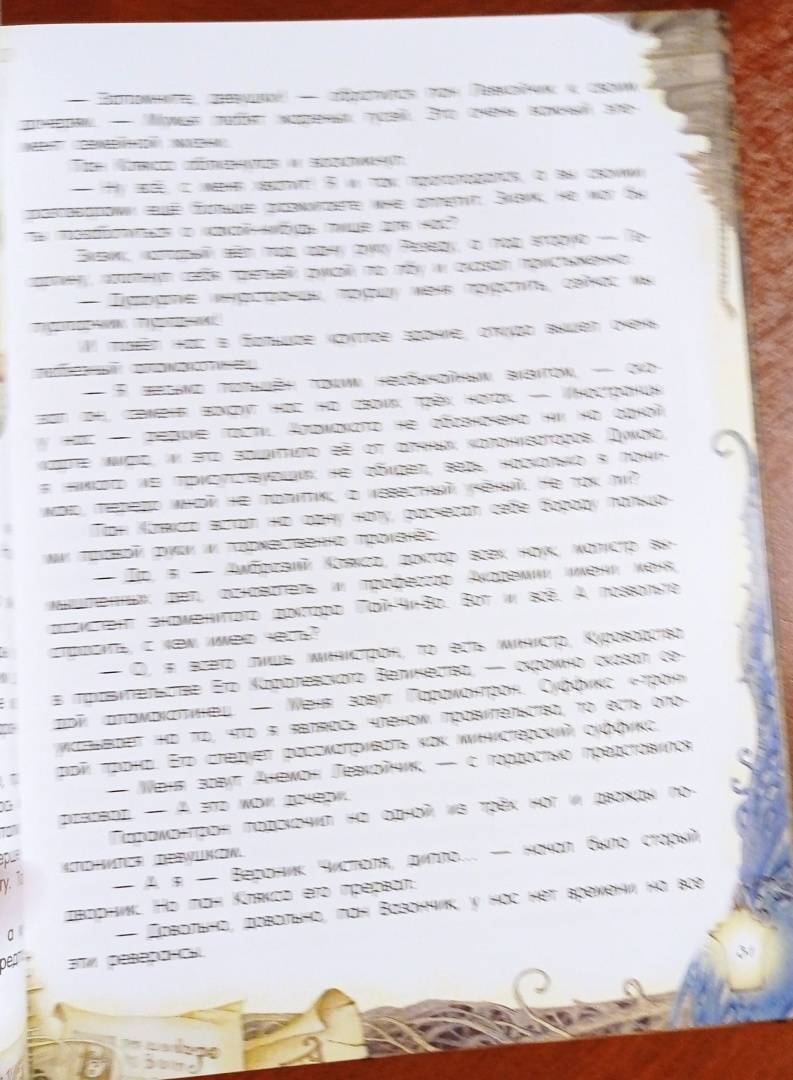 — Запомните, девушки! — обратился пан Левкойчик к своим
дочерям. — Мужья любят жареных гусей. Это очень важный эле-
мент семейной жизни.
Пан Клякса облизнулся и воскликнул:
— Ну всё, с меня хватит! Я и так проголодался, а вы своими
разговорами ещё больше разжигаете мне аппетит. Зизик, не мог бы
ты позаботиться о какой-нибудь пище для нас?
Зизик, который вёл под одну руку Резеду, а под вторую — Ге-
оргину, хлопнул себя третьей рукой по лбу и сказал пристыженно:
— меня сейчас мы
И повёл нас в большое круглое здание, откуда вышел очень
любезный аламакотинец.
— Я весьма польщён таким необычайным визитом, — ска-
зал он, семеня вокруг нас на своих трёх ногах. — Иностранцы
у нас — редкие гости. Аламакота не обозначена ни на одной
карте мира, и это защитило её от алчных колонизаторов. Думаю,
я никого из присутствующих не обидел, ведь, насколько я пони-
маю, передо мной не политик, а известный учёный. Не так ли?
Пан Клякса встал на одну ногу, расчесал себе бороду пальца-
ми правой руки и торжественно произнёс:
— Да, я — Амброзий Клякса, доктор всех наук, магистр вы-
мышленных дел, основатель и профессор Академии имени меня,
ассистент знаменитого доктора Пай-Чи-Во. Вот и всё. А позвольте
спросить, с кем имею честь?
— О, я всего лишь министрон, то есть министр, Куроводства
в правительстве Его Королевского Величества, — скромно сказал се-
дой аламакотинец. — Меня зовут Парамонтрон. Суффикс «-трон»
указывает на то, что я являюсь членом правительства, то есть опо-
рой трона. Его следует рассматривать как министерский суффикс.
— Меня зовут Анемон Левкойчик, — с гордостью представился
розовод. — А это мои дочери.
Парамонтрон подскочил на одной из трёх ног и дважды по-
клонился девушкам.
— А я — Вероник Чистюля, дипло... — начал было старый
дворник. Но пан Клякса его прервал:
— Довольно, довольно, пан Вазончик, у нас нет времени на все
эти реверансы.